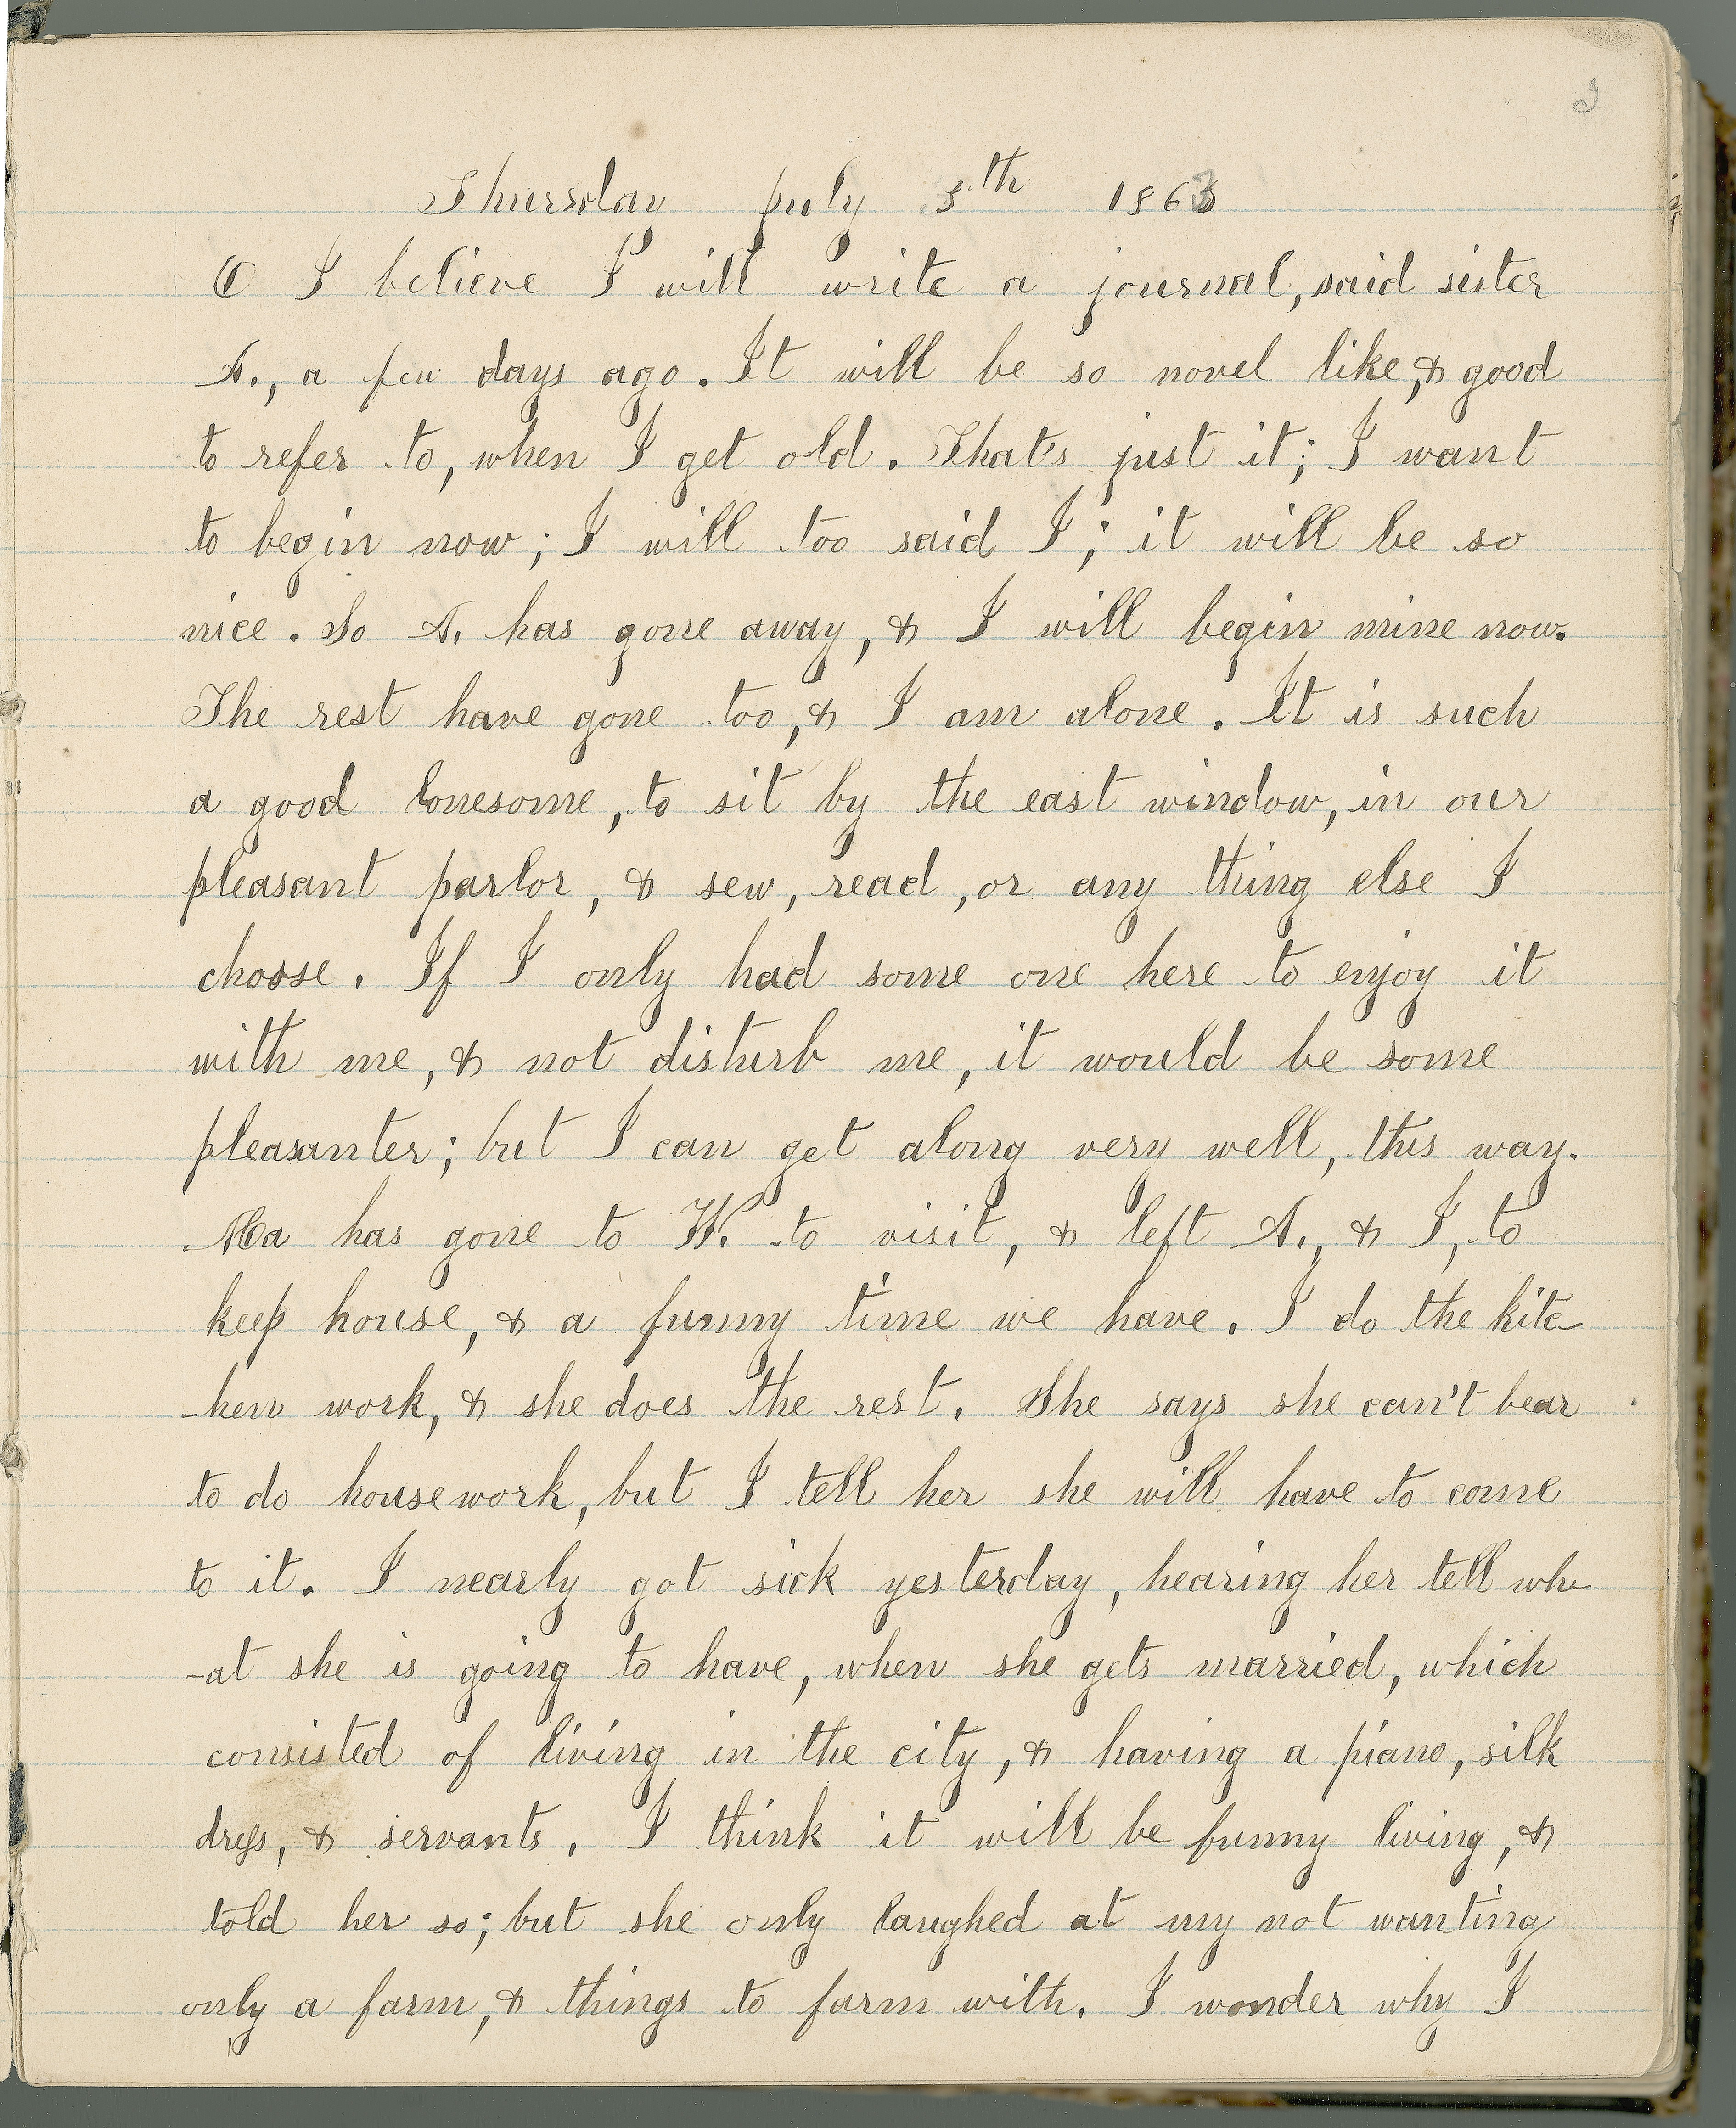 Thursday July 5th 1863
O I believe I will write a journal, said sister
A., a few days ago. It will be so novel like, & good
to refer to, when I get old. That's just it; I want
to begin now; I will too said I; it will be so
nice. So A. has gone away, & I will begin mine now.
The rest have gone too, & I am alone. It is such
a good lonesome, to sit by the east window, in our
pleasant parlor, & sew, read, or any thing else I
choose. If I only had some one here to enjoy it
with me, & not disturb me, it would be some
pleasanter; but I can get along very well, this way.
Ma has gone to W. to visit, & left A., & I, to
keep house, & a funny time we have. I do the kitc-
-hen work, & she does the rest. She says she can't bear
to do housework, but I tell her she will have to come
to it. I nearly got sick yesterday, hearing her tell wh-
-at she is going to have, when she gets married, which
consisted of living in the city, & having a piano, silk
dress, & servants. I think it will be funny living, &
told her so; but she only laughed at my not wanting
only a farm, & things to farm with. I wonder why I